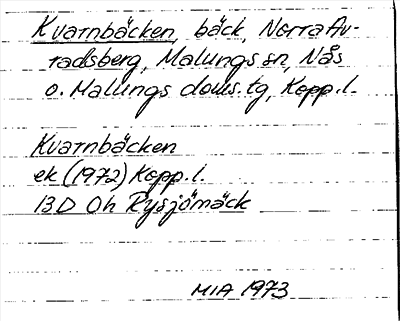 Kvarnbäcken, bäck, Norra Av-
radsberg, Malungs sn, Nås
o. Malungs doms.tg, Kopp.l.
Kvarnbäcken
ek (1972) Kopp.l.
13D 0h Rysjömäck
MIA 1973